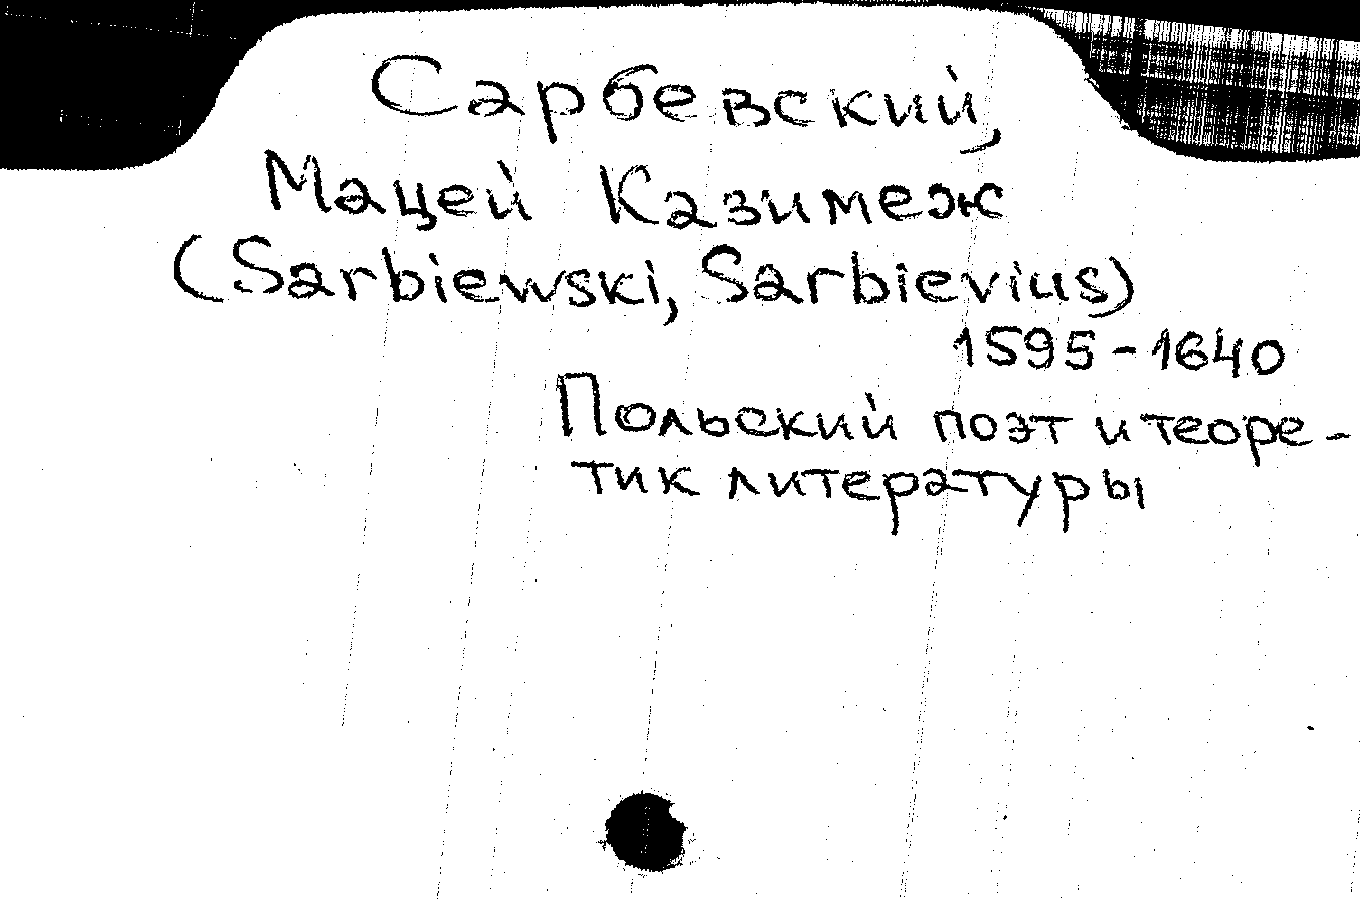 Сарбевский,
Мацей Казимеж
(Sarbiewski, Sarbievius)
1595-1640
Польский поэт и теоре-
тик литературы